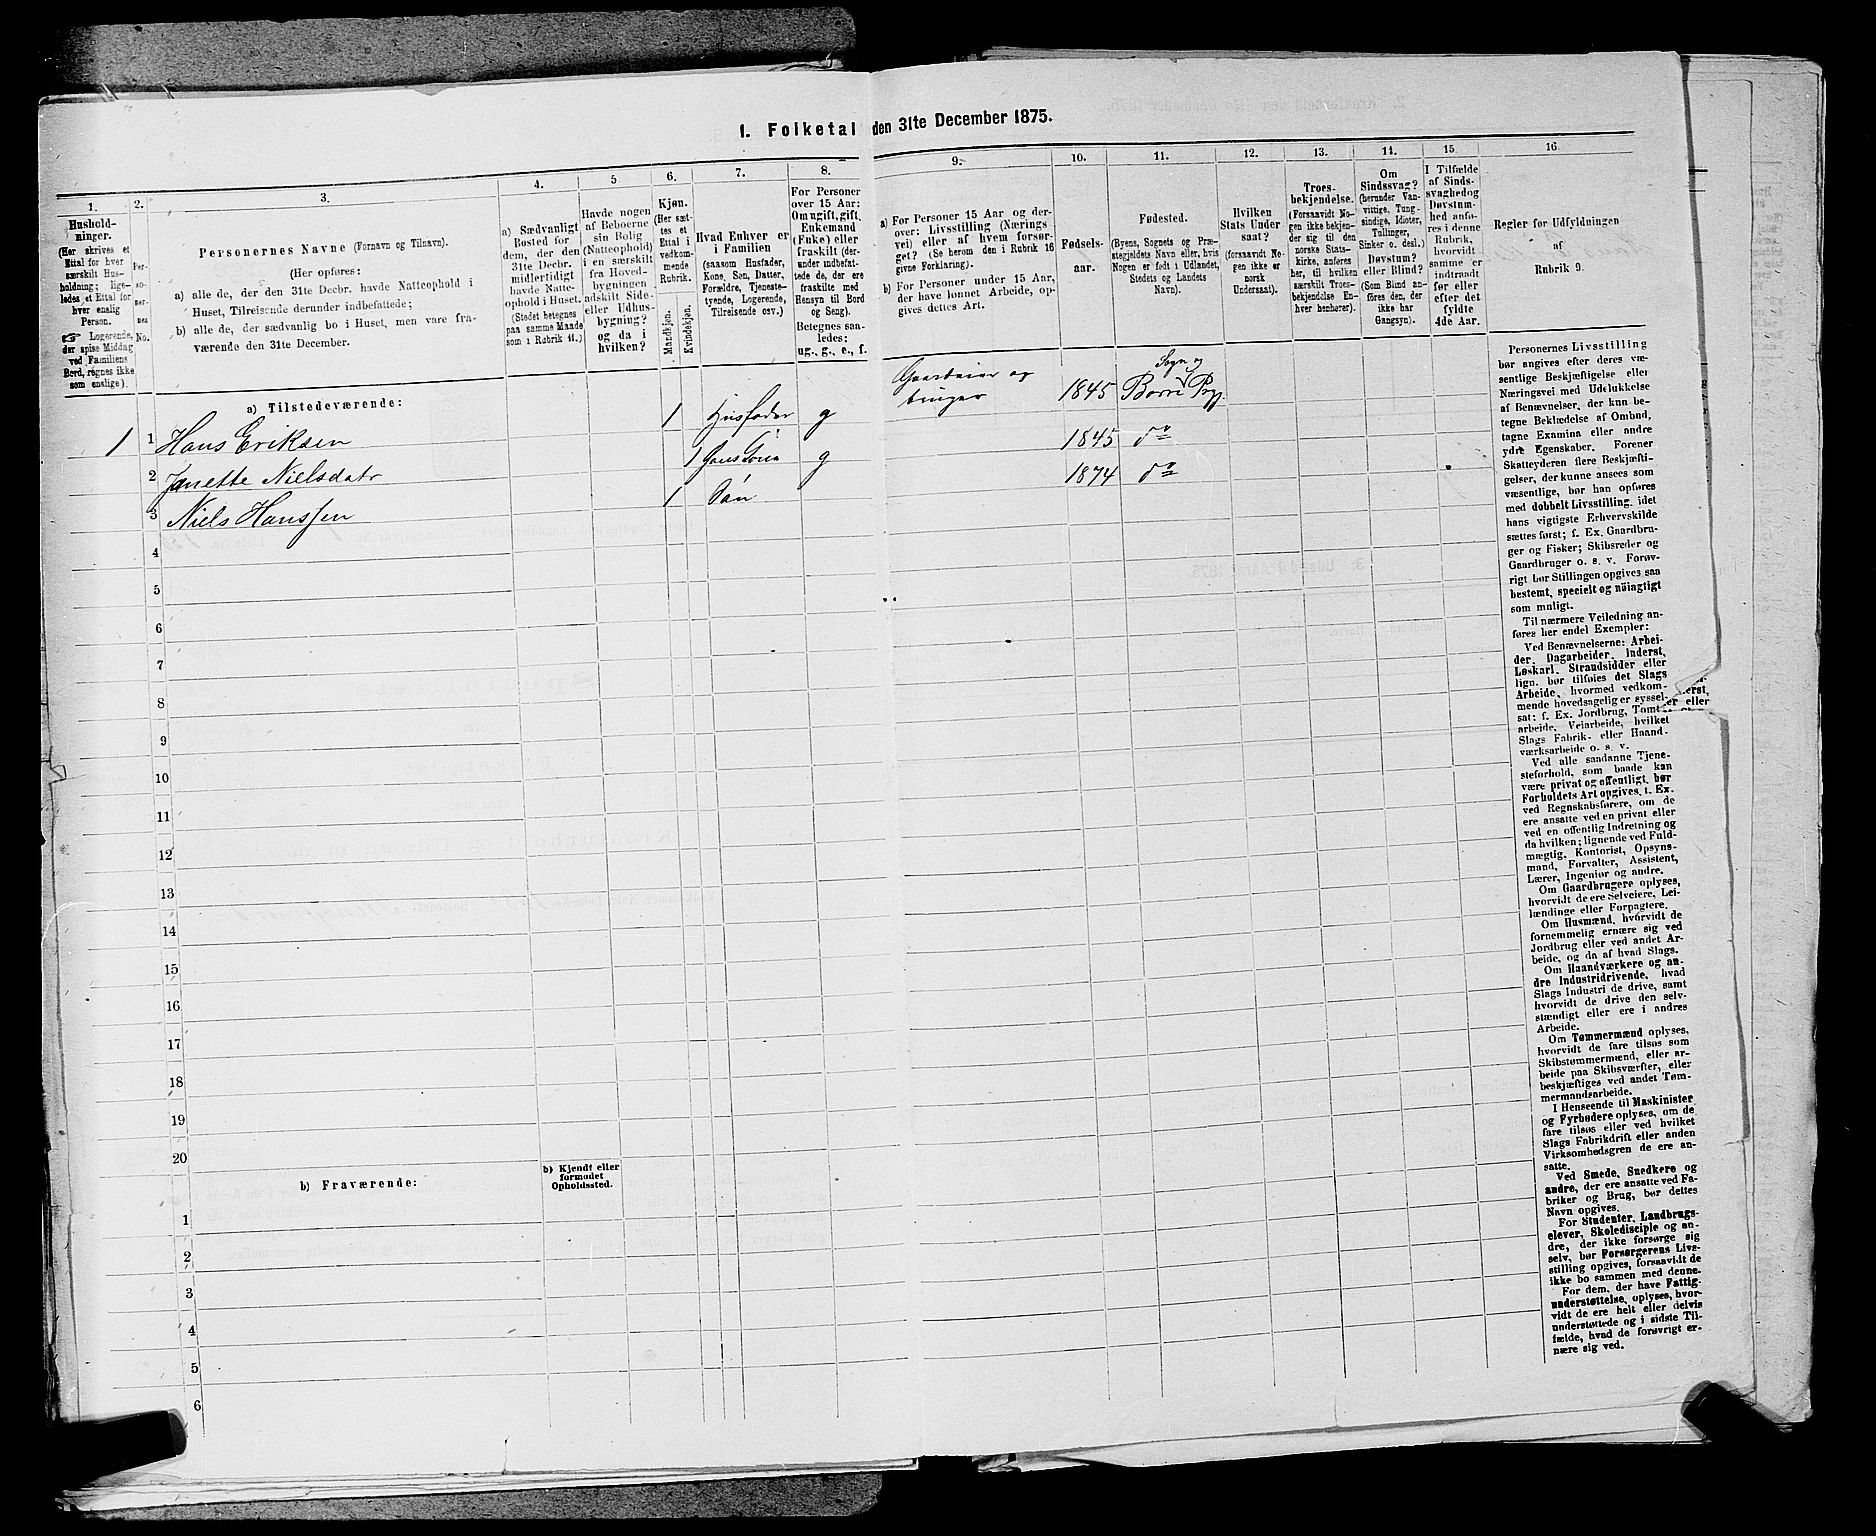 1. Folketal den 31te December 1875.
1.
Hushold-
ninger.
(Her skrives et
Ettal for hver
særskilt Hus-
holdning; lige-
ledes et Ettal for
hver enslig
Person.
☞ Logerende,
der spise Middag
ved Familiens
Bord, regnes ikke
som enslige).
2.
Per-
so-
ner-
nes
No.
3.
Personernes Navne (Fornavn og Tilnavn).
(Her opføres:
a) alle de, der den 31te Decbr. havde Natteophold i
Huset, Tilreisende derunder indbefattede;
b) alle de, der sædvanlig bo i Huset, men vare fra-
værende den 31te December.
4.
a) Sædvanligt
Bosted for
dem, der den
31te Decbr.
midlertidigt
havde Natte-
ophold i Huset.
(Stedet betegnes
paa samme Maade
som i Rubrik 11.)
5
Havde nogen
af Beboerne
sin Bolig
(Natteophold)
i en særskilt
fra Hoved-
bygningen
adskilt Side-
eller Udhus-
bygning?
og da i
hvilken?
6.
Kjøn.
(Her sæt-
tes et
Ettal i
vedkom-
mende
Rubrik.)
Mandkjøn.
Kvindekjøn.
7.
Hvad Enhver er
i Familien
(saasom Husfader,
Kone, Søn, Datter,
Forældre, Tjeneste-
tyende, Logerende,
Tilreisende osv.)
8.
For Personer
over 15 Aar:
Om ugift, gift,
Enkemand
(Enke) eller
fraskilt (der-
under indbefat-
tede de, der ere
fraskilte med
Hensyn til Bord
og Seng).
Betegnes saa-
ledes:
ug., g., e., f.
9.
a) For Personer 15 Aar og der-
over: Livsstilling (Nærings-
vei) eller af hvem forsør-
get? (Se herom den i Rubrik 16
givne Forklaring).
b) For Personer under 15 Aar,
der have lønnet Arbeide, op-
gives dettes Art.
10.
Fødsels-
aar.
11.
Fødested.
(Byens, Sognets og Præ-
stegjeldets Navn eller, hvis
Nogen er født i Udlandet,
Stedets og Landets
Navn).
12.
Hvilken
Stats Under-
saat?
(forsaavidt No-
gen ikke er
norsk
Undersaat).
13.
Troes-
bekjendelse.
(Forsaavidt No-
gen ikke bekjen-
der sig til den
norske Stats-
kirke, anføres
her, til hvilken
særskilt Troes-
bekjendelse En-
hver henhører).
14.
Om
Sindssvag?
(herunder Van-
vittige, Tung-
sindige, Idioter,
Tullinger,
Sinker o. desl.)
Døvstum?
eller Blind?
(Som Blind an-
føres den, der
ikke har
Gangsyn).
15
I Tilfælde
af Sinds-
svaghed og
Døvstum-
hed anfø-
res i denne
Rubrik,
hvorvidt
samme er
indtraadt
før eller
efter det
fyldte
4de Aar.
16
Regler for Udfyldningen
af
Rubrik 9.
a) Tilstedeværende:
1 1 Hans Eriksen 1 Husfader g Gaardeier og bruger 1845 Borre Sogn og Pgj.
2 Janette Nielsdatr 1 hans Kone g 1845 do
3 Niels Hanssen 1 Søn 1874 do
4
5
6
7
8
9
10
11
12
13
14
15
16
17
18
19
20
b) Fraværende:
b) Kjendt eller
formodet
Opholdssted.
1
2
3
4
5
6
Personernes Livsstilling
bør angives efter deres væ-
sentlige Beskjæftigelse eller
Næringsvei med Udelukkelse
af Benævnelser, der kun be-
tegne Beklædelse af Ombud,
tagne Examina eller andre
ydre Egenskaber. Forener
Skatteyderen flere Beskjæfti-
gelser, der kunne ansees som
væsentlige, bør han opføres
med dobbelt Livsstilling, idet
hans vigtigste Erhvervskilde
sættes først; f. Ex. Gaardbru-
ger og Fisker; Skibsreder og
Gaardbruger o. s. v. Forøv-
rigt bør Stillingen opgives saa
bestemt, specielt og nøiagtigt
som muligt.
Til nærmere Veiledning an-
føres her endel Exempler:
Ved Benævnelserne: Arbei-
der, Dagarbeider, Inderst,
Løskarl, Strandsidder eller
lign. bør tilføies det Slags
Arbeide, hvormed vedkom-
mende hovedsagelig er syssel-
sat: f. Ex. Jordbrug, Tomt-
arbeide, Veiarbeide, hvilket
Slags Fabrik- eller Haand-
værksarbeide o. s. v.
Ved alle saadanne Tjene-
steforhold, som baade kan
være privat og offentligt, bør
Forholdets Art opgives, t. Ex.
ved Regnskabsførere, om de
ere ansatte ved en privat eller
ved en offentlig Indretning og
da hvilken; lignende ved Fuld-
mægtig, Kontorist, Opsyns-
mand, Forvalter, Assistent,
Lærer, Ingeniør og andre.
Om Gaardbrugere oplyses,
hvorvidt de ere Selveiere, Lei-
lændinge eller Forpagtere.
Om Husmænd, hvorvidt de
fornemmelig ernære sig ved
Jordbrug eller ved andet Ar-
beide, og da af hvad Slags.
Om Haandværkere og an-
dre Industridrivende, hvad
Slags Industri de drive, samt
hvorvidt de drive den selv-
stændigt eller ere i andres
Arbeide.
Om Tømmermænd oplyses,
hvorvidt de fare tilsøs som
Skibstømmermænd, eller ar-
beide paa Skibsværfter, eller
beskjæftiges ved andet Tøm-
mermandsarbeide.
I Henseende til Maskinister
og Fyrbødere oplyses, om de
fare tilsøs eller ved hvilket
Slags Fabrikdrift eller anden
Virksomhedsgren de ere an-
satte.
Ved Smede, Snedkere og
andre, der ere ansatte ved Fa-
briker og Brug, bør dettes
Navn opgives.
For Studenter, Landbrugs-
elever, Skoledisciple og an-
dre, der ikke forsørge sig
selv, bør Forsørgerens Livs-
stilling opgives, forsaavidt de
ikke bo sammen med denne.
For dem, der have Fattig-
understøttelse, oplyses, hvor-
vidt de ere helt eller delvis
understøttede og i sidste Til-
fælde, hvad de forøvrigt er-
nære sig ved.